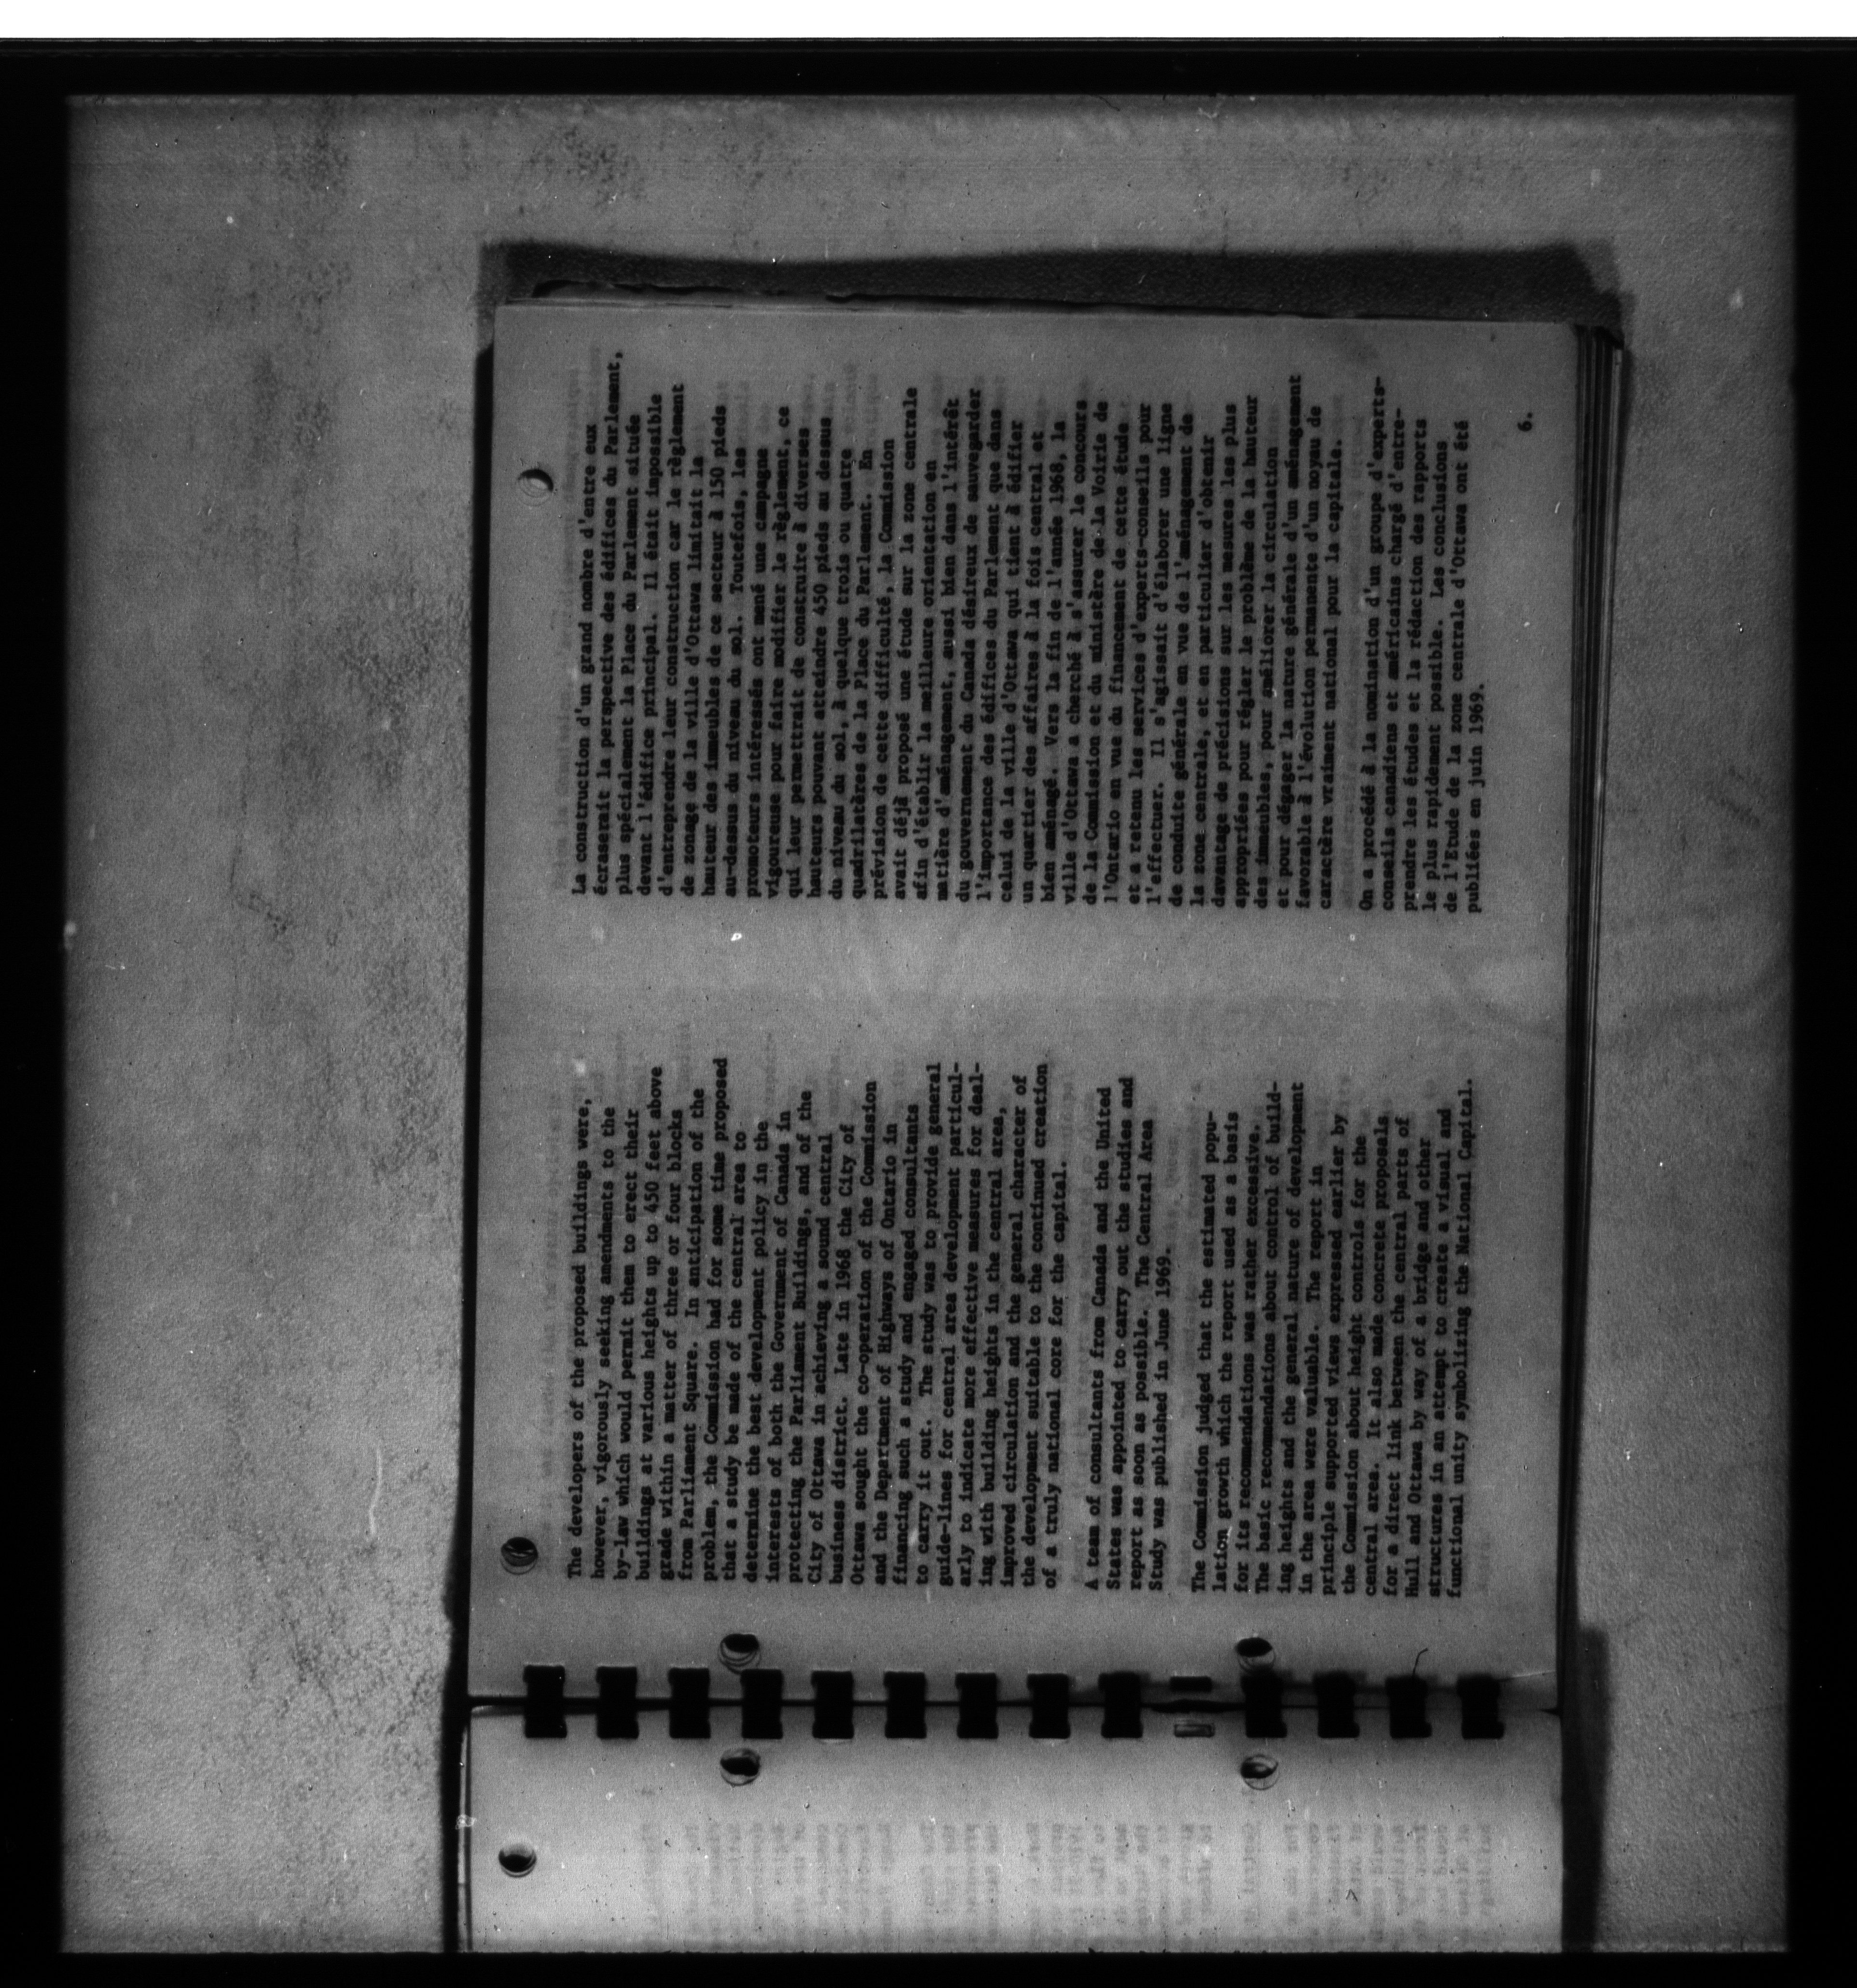 The developers of the proposed buildings were,
however, vigorously seeking amendments to the
by-law which would permit them to erect their
buildings at various heights up to 450 feet above
grade within a matter of three or four blocks
from Parliament Square. In anticipation of the
problem, the Commission had for some time proposed
that a study be made of the central area to
determine the best development policy in the
interests of both the Government of Canada in
protecting the Parliament Buildings, and of the
City of Ottawa in achieving a sound central
business district. Late in 1968 the City of
Ottawa sought the co-operation of the Commission
and the Department of Highways of Ontario in
financing such a study and engaged consultants
to carry it out. The study was to provide general
guide-lines for central area development particul-
arly to indicate more effective measures for deal-
ing with building heights in the central area,
improved circulation and the general character of
the development suitable to the continued creation
of a truly national core for the capital.
A team of consultants from Canada and the United
States was appointed to carry out the studies and
report as soon as possible. The Central Area
Study was published in June 1969.
The Commission judged that the estimated popu-
lation growth which the report used as a basis
for its recommendations was rather excessive.
The basic recommendations about control of build-
ing heights and the general nature of development
in the area were valuable. The report in
principle supported views expressed earlier by
the Commission about height controls for the
central area. It also made concrete proposals
for a direct link between the central parts of
Hull and Ottawa by way of a bridge and other
structures in an attempt to create a visual and
functional unity symbolizing the National Capital.
La construction d'un grand nombre d'entre eux
écraserait la perspective des édifices du Parlement,
plus spécialement la Place du Parlement située
devant l'édifice principal. Il était impossible
d'entreprendre leur construction car le règlement
de zonage de la ville d'Ottawa limitait la
hauteur des immeubles de ce secteur à 150 pieds
au-dessus du niveau du sol. Toutefois, les
promoteurs intéressés ont mené une campagne
vigoureuse pour faire modifier le règlement, ce
qui leur permettrait de construire à diverses
hauteurs pouvant atteindre 450 pieds au dessus
du niveau du sol, à quelque trois ou quatre
quadrilatères de la Place du Parlement. En
prévision de cette difficulté, la Commission
avait déjà proposé une étude sur la zone centrale
afin d'établir la meilleure orientation en
matière d'aménagement, aussi bien dans l'intérêt
du gouvernement du Canada désireux de sauvegarder
l'importance des édifices du Parlement que dans
celui de la ville d'Ottawa qui tient à édifier
un quartier des affaires à la fois central et
bien aménagé. Vers la fin de l'année 1968, la
ville d'Ottawa a cherché à s'assurer le concours
de la Commission et du ministère de la Voirie de
l'Ontario en vue du financement de cette étude
et a retenu les services d'experts-conseils pour
l'effectuer. Il s'agissait d'élaborer une ligne
de conduite générale en vue de l'aménagement de
la zone centrale, et en particulier d'obtenir
davantage de précisions sur les mesures les plus
appropriées pour régler le problème de la hauteur
des immeubles, pour améliorer la circulation
et pour dégager la nature générale d'un aménagement
favorable à l'évolution permanente d'un noyau de
caractère vraiment national pour la capitale.
On a procédé à la nomination d'un groupe d'experts-
conseils canadiens et américains chargé d'entre-
prendre les études et la rédaction des rapports
le plus rapidement possible. Les conclusions
de l'Etude de la zone centrale d'Ottawa ont été
publiées en juin 1969.
6.